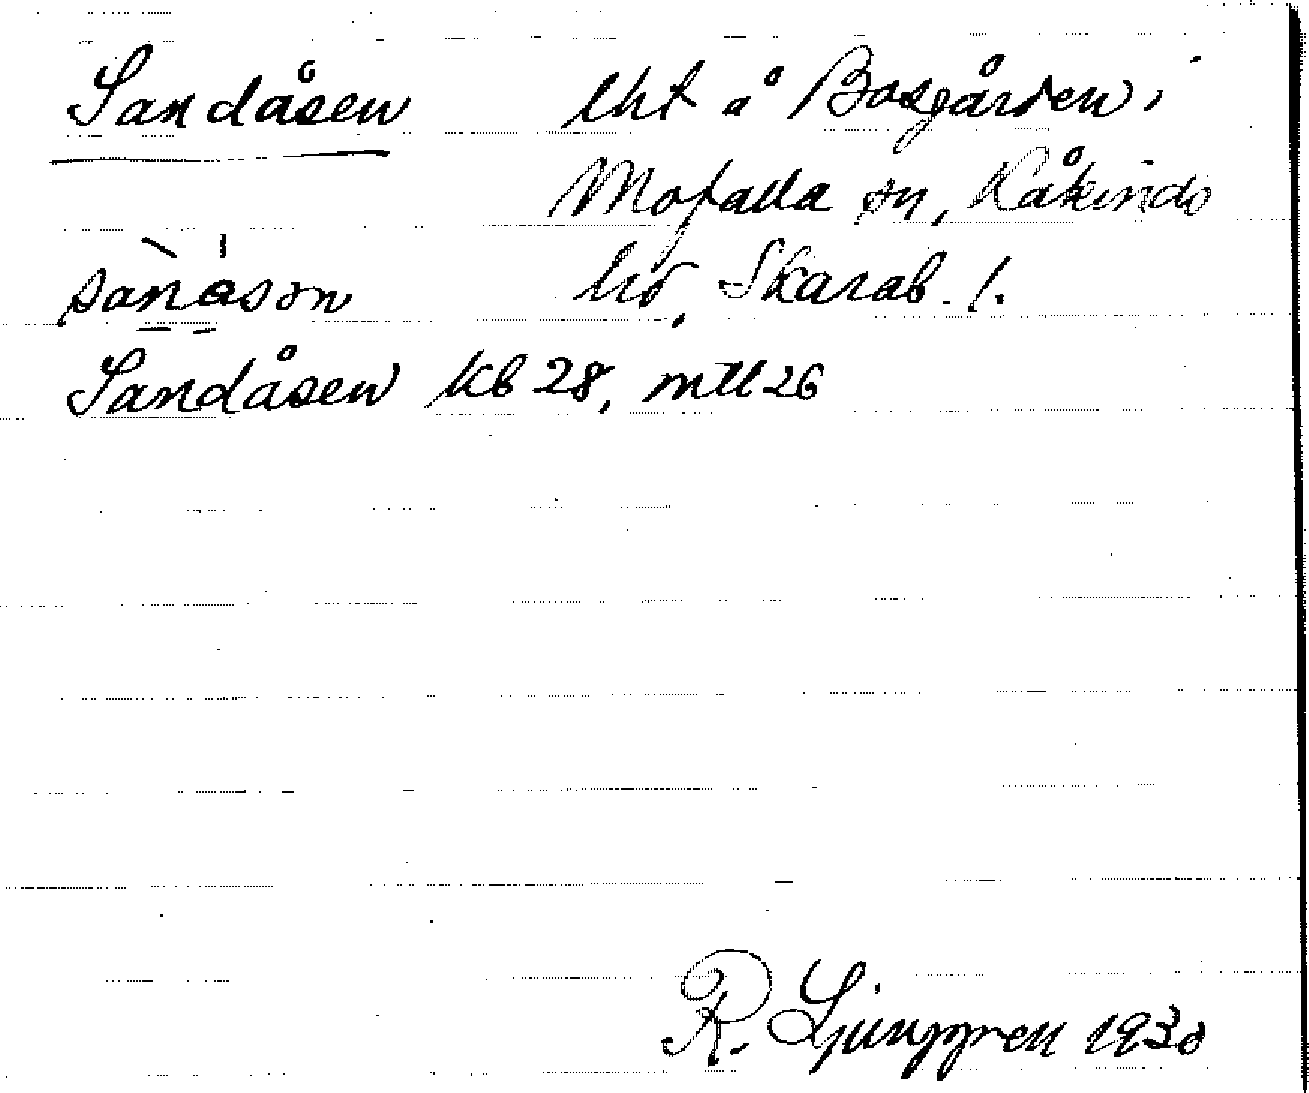 Sandåsen lht å Bosgården i
Mofalla sn, Kåkinds
sànáson hd, Skarab. l.
Sandåsen kb 28, mtl 26
R. Ljunggren 1930